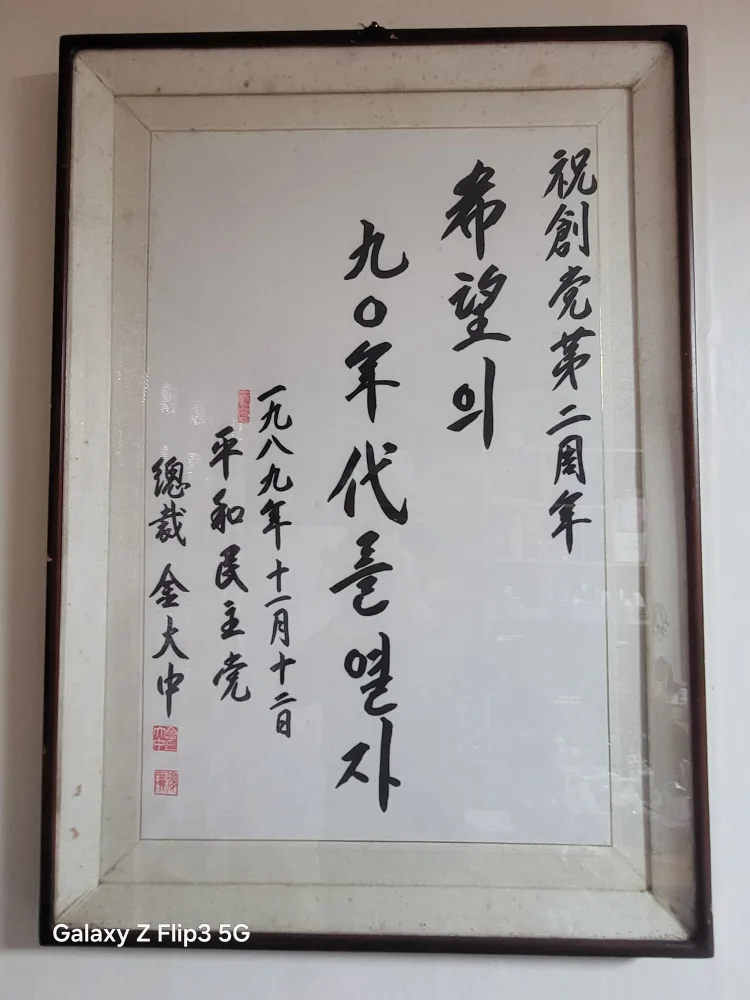 祝創党第二周年
希望의
九〇年代를열자
一九八九年十一月十二日
平和民主党
總裁 金大中
Galaxy Z Flip3 5G